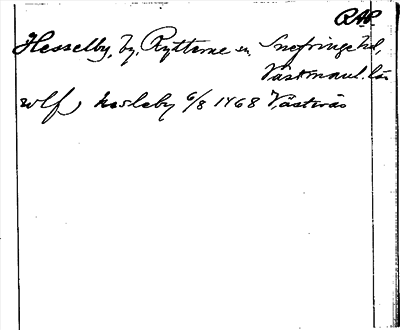 RAP.
Hesselby, by, Rytterne sn, Snefringe hd,
Västmanl. län
wlf hæsleby 6/8 1468 Västerås